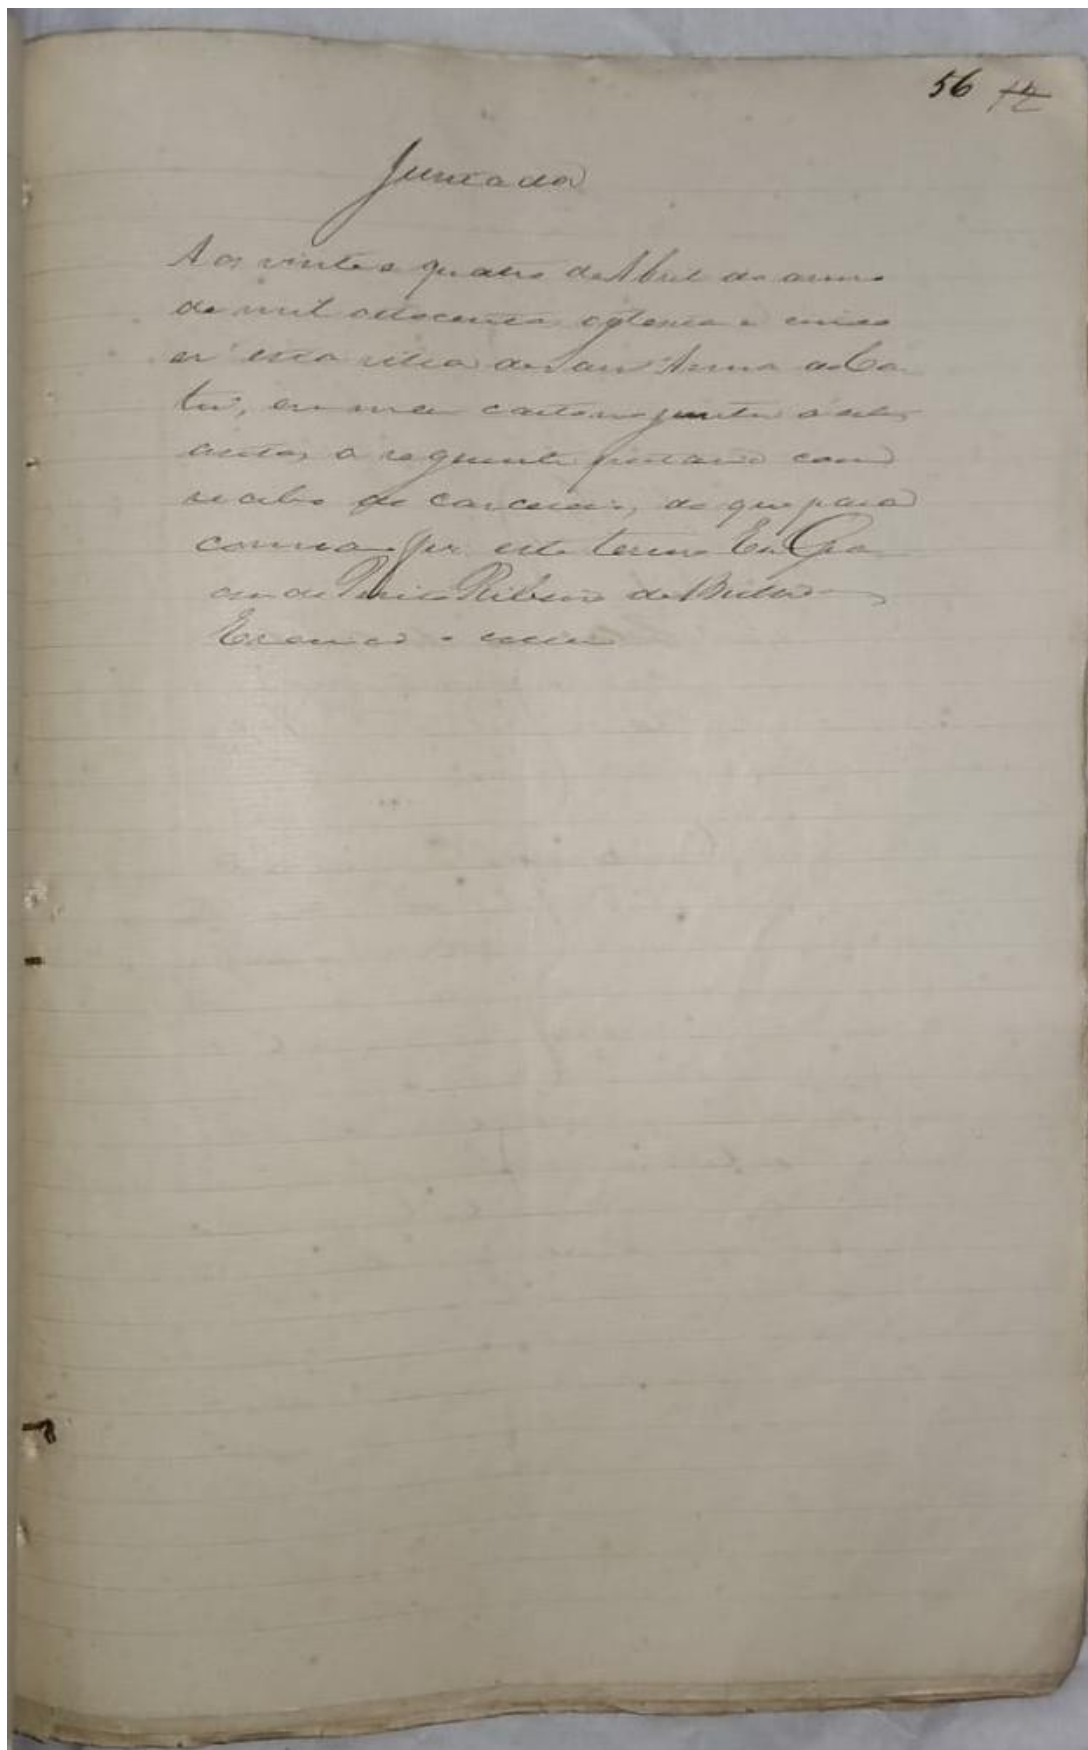 56 12
Juntada
Aos vinte e quatro de Abril do anno
de mil oitocentos oitenta e cinco
n'esta villa de Sant'Anna do Ca-
tú, em meu cartorio junto a estes
autos o seguinte com
recibo do carcereiro, do que para
constar fiz este termo Eu
Ribeiro de
Escrivão o escrevi